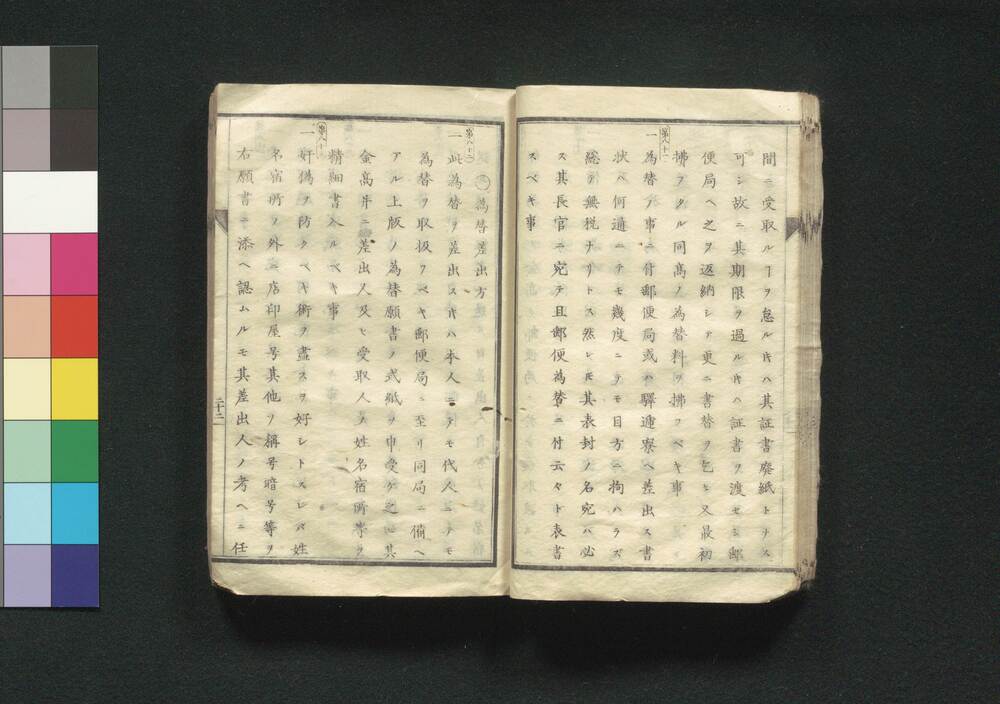 間ニ受取ルヿヲ怠ル𬼀ハ其証書廃紙トナス
可シ故ニ其期限ヲ過ル𬼀ハ証書ヲ渡セシ郵
便局ヘ之ヲ返納シテ更ニ書替ヲ乞ヒ又最初
拂フタル同高ノ為替料ヲ拂フベキ事
第八十一
一為替ノ事ニ付郵便局或ハ驛逓寮ヘ差出ス書
状ハ何通ニテモ幾度ニテモ目方ニ拘ハラズ
総テ無税ナリトス然レ𪜈其表封ノ名宛ハ必
ス其長官ニ宛テ且郵便為替ニ付云々ト表書
スベキ事
為替差出方
第八十二
一此為替ヲ差出ス𬼀ハ本人ニテモ代人ニテモ
為替ヲ取扱フベキ郵便局ニ至リ同局ニ備ヘ
アル上版ノ為替願書ノ式紙ヲ申受ケ之ニ其
金高并ニ差出人及ヒ受取人ノ姓名宿所等ヲ
精細書入ルベキ事
第八十三
一奸偽ヲ防クベキ術ヲ盡スヲ好シトスレバ姓
名宿所ノ外ニ店印屋号其他ノ稱号暗号等ヲ
右願書ニ添ヘ認ムルモ其差出人ノ考ヘニ任
二十二